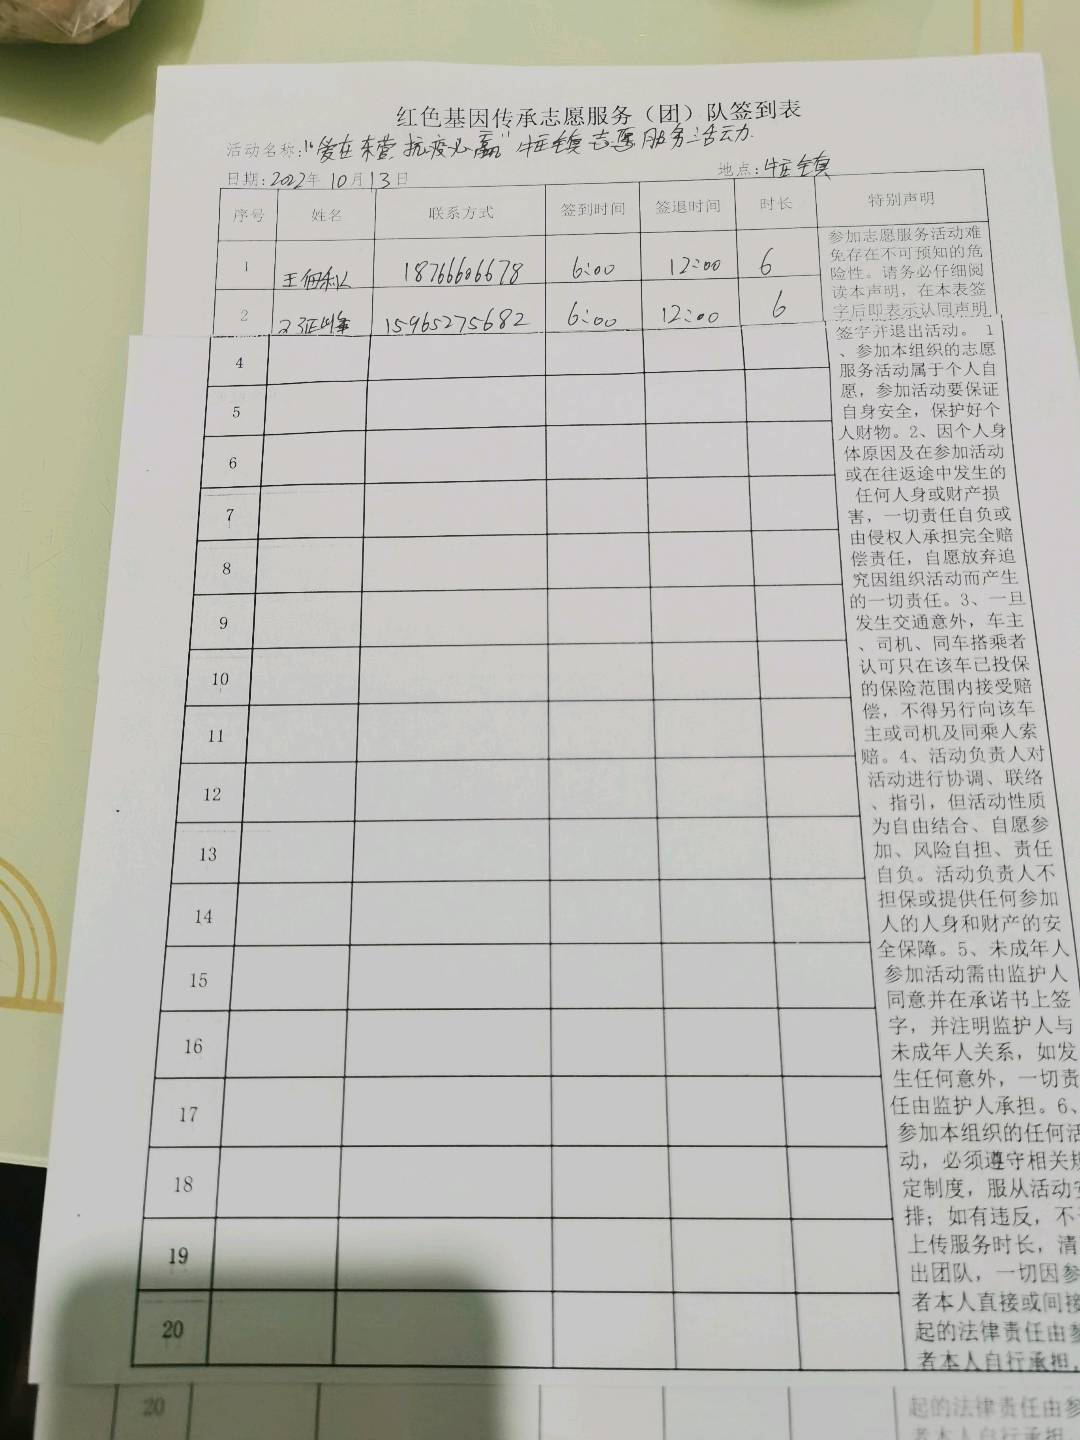 红色基因传承志愿服务（团）队签到表
活动名称:"爱在东营 抗疫必赢" 牛庄镇志愿服务活动
日期:2022年10月13日 地点:牛庄镇
序号 姓名 联系方式 签到时间 签退时间 时长 特别声明
1 王 18766606678 6:00 12:00 6
2 15965275682 6:00 12:00 6
参加志愿服务活动难
免存在不可预知的危
险性。请务必仔细阅
读本声明，在本表签
字后即表示认同声明
签字并退出活动。 1
、参加本组织的志愿
服务活动属于个人自
愿，参加活动要保证
自身安全，保护好个
人财物。2、因个人身
体原因及在参加活动
或在往返途中发生的
任何人身或财产损
害，一切责任自负或
由侵权人承担完全赔
偿责任，自愿放弃追
究因组织活动而产生
的一切责任。3、一旦
发生交通意外，车主
、司机、同车搭乘者
认可只在该车已投保
的保险范围内接受赔
偿，不得另行向该车
主或司机及同乘人索
赔。4、活动负责人对
活动进行协调、联络
、指引，但活动性质
为自由结合、自愿参
加、风险自担、责任
自负。活动负责人不
担保或提供任何参加
人的人身和财产的安
全保障。5、未成年人
参加活动需由监护人
同意并在承诺书上签
字，并注明监护人与
未成年人关系，如发
生任何意外，一切责
任由监护人承担。6、
参加本组织的任何活
动，必须遵守相关规
定制度，服从活动安
排；如有违反，不
上传服务时长，清
出团队，一切因参
者本人直接或间接
起的法律责任由参
者本人自行承担，
4
5
6
7
8
9
10
11
12
13
14
15
16
17
18
19
20
20 起的法律责任由参
者本人自行承担